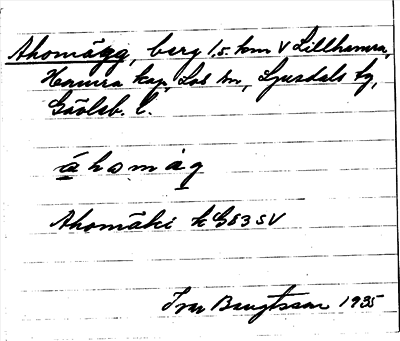 Ahomägg, berg 1,5 km V Lillhamra,
Hamra kap, Los sn, Ljusdals tg,
Gävleb. l.
áhomäg
Ahomäki k G83 SV
Ivar Bengtsson 1935